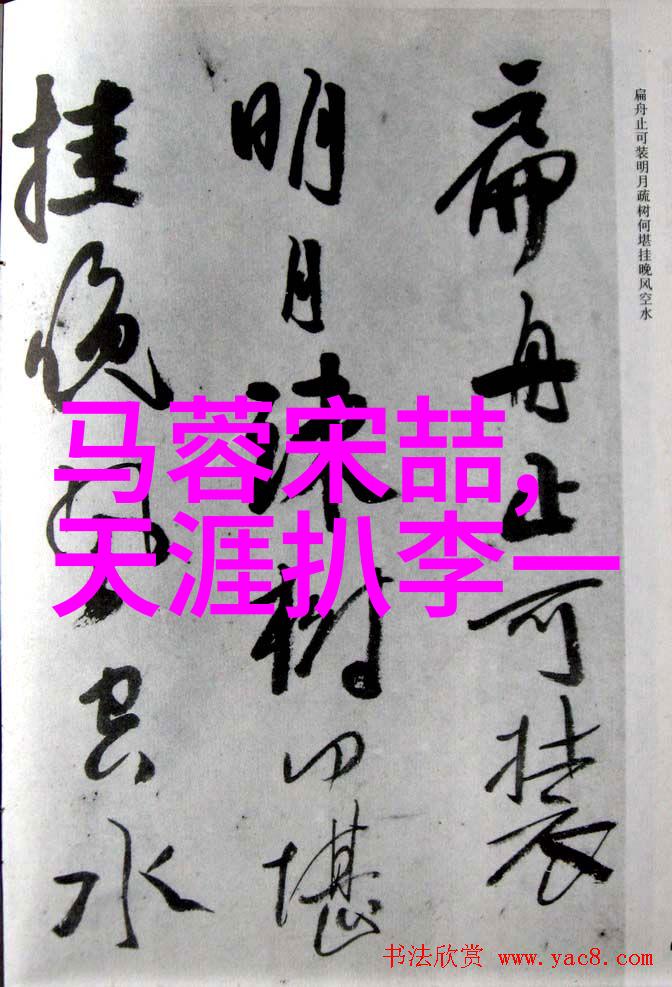 扁舟止可装
明月疎樹何堪
挂晚風空水
扁舟止可装明月疏树何堪挂晚风空水
马蓉宋喆,
天涯扒李一
书法欣赏 www.yac8.com